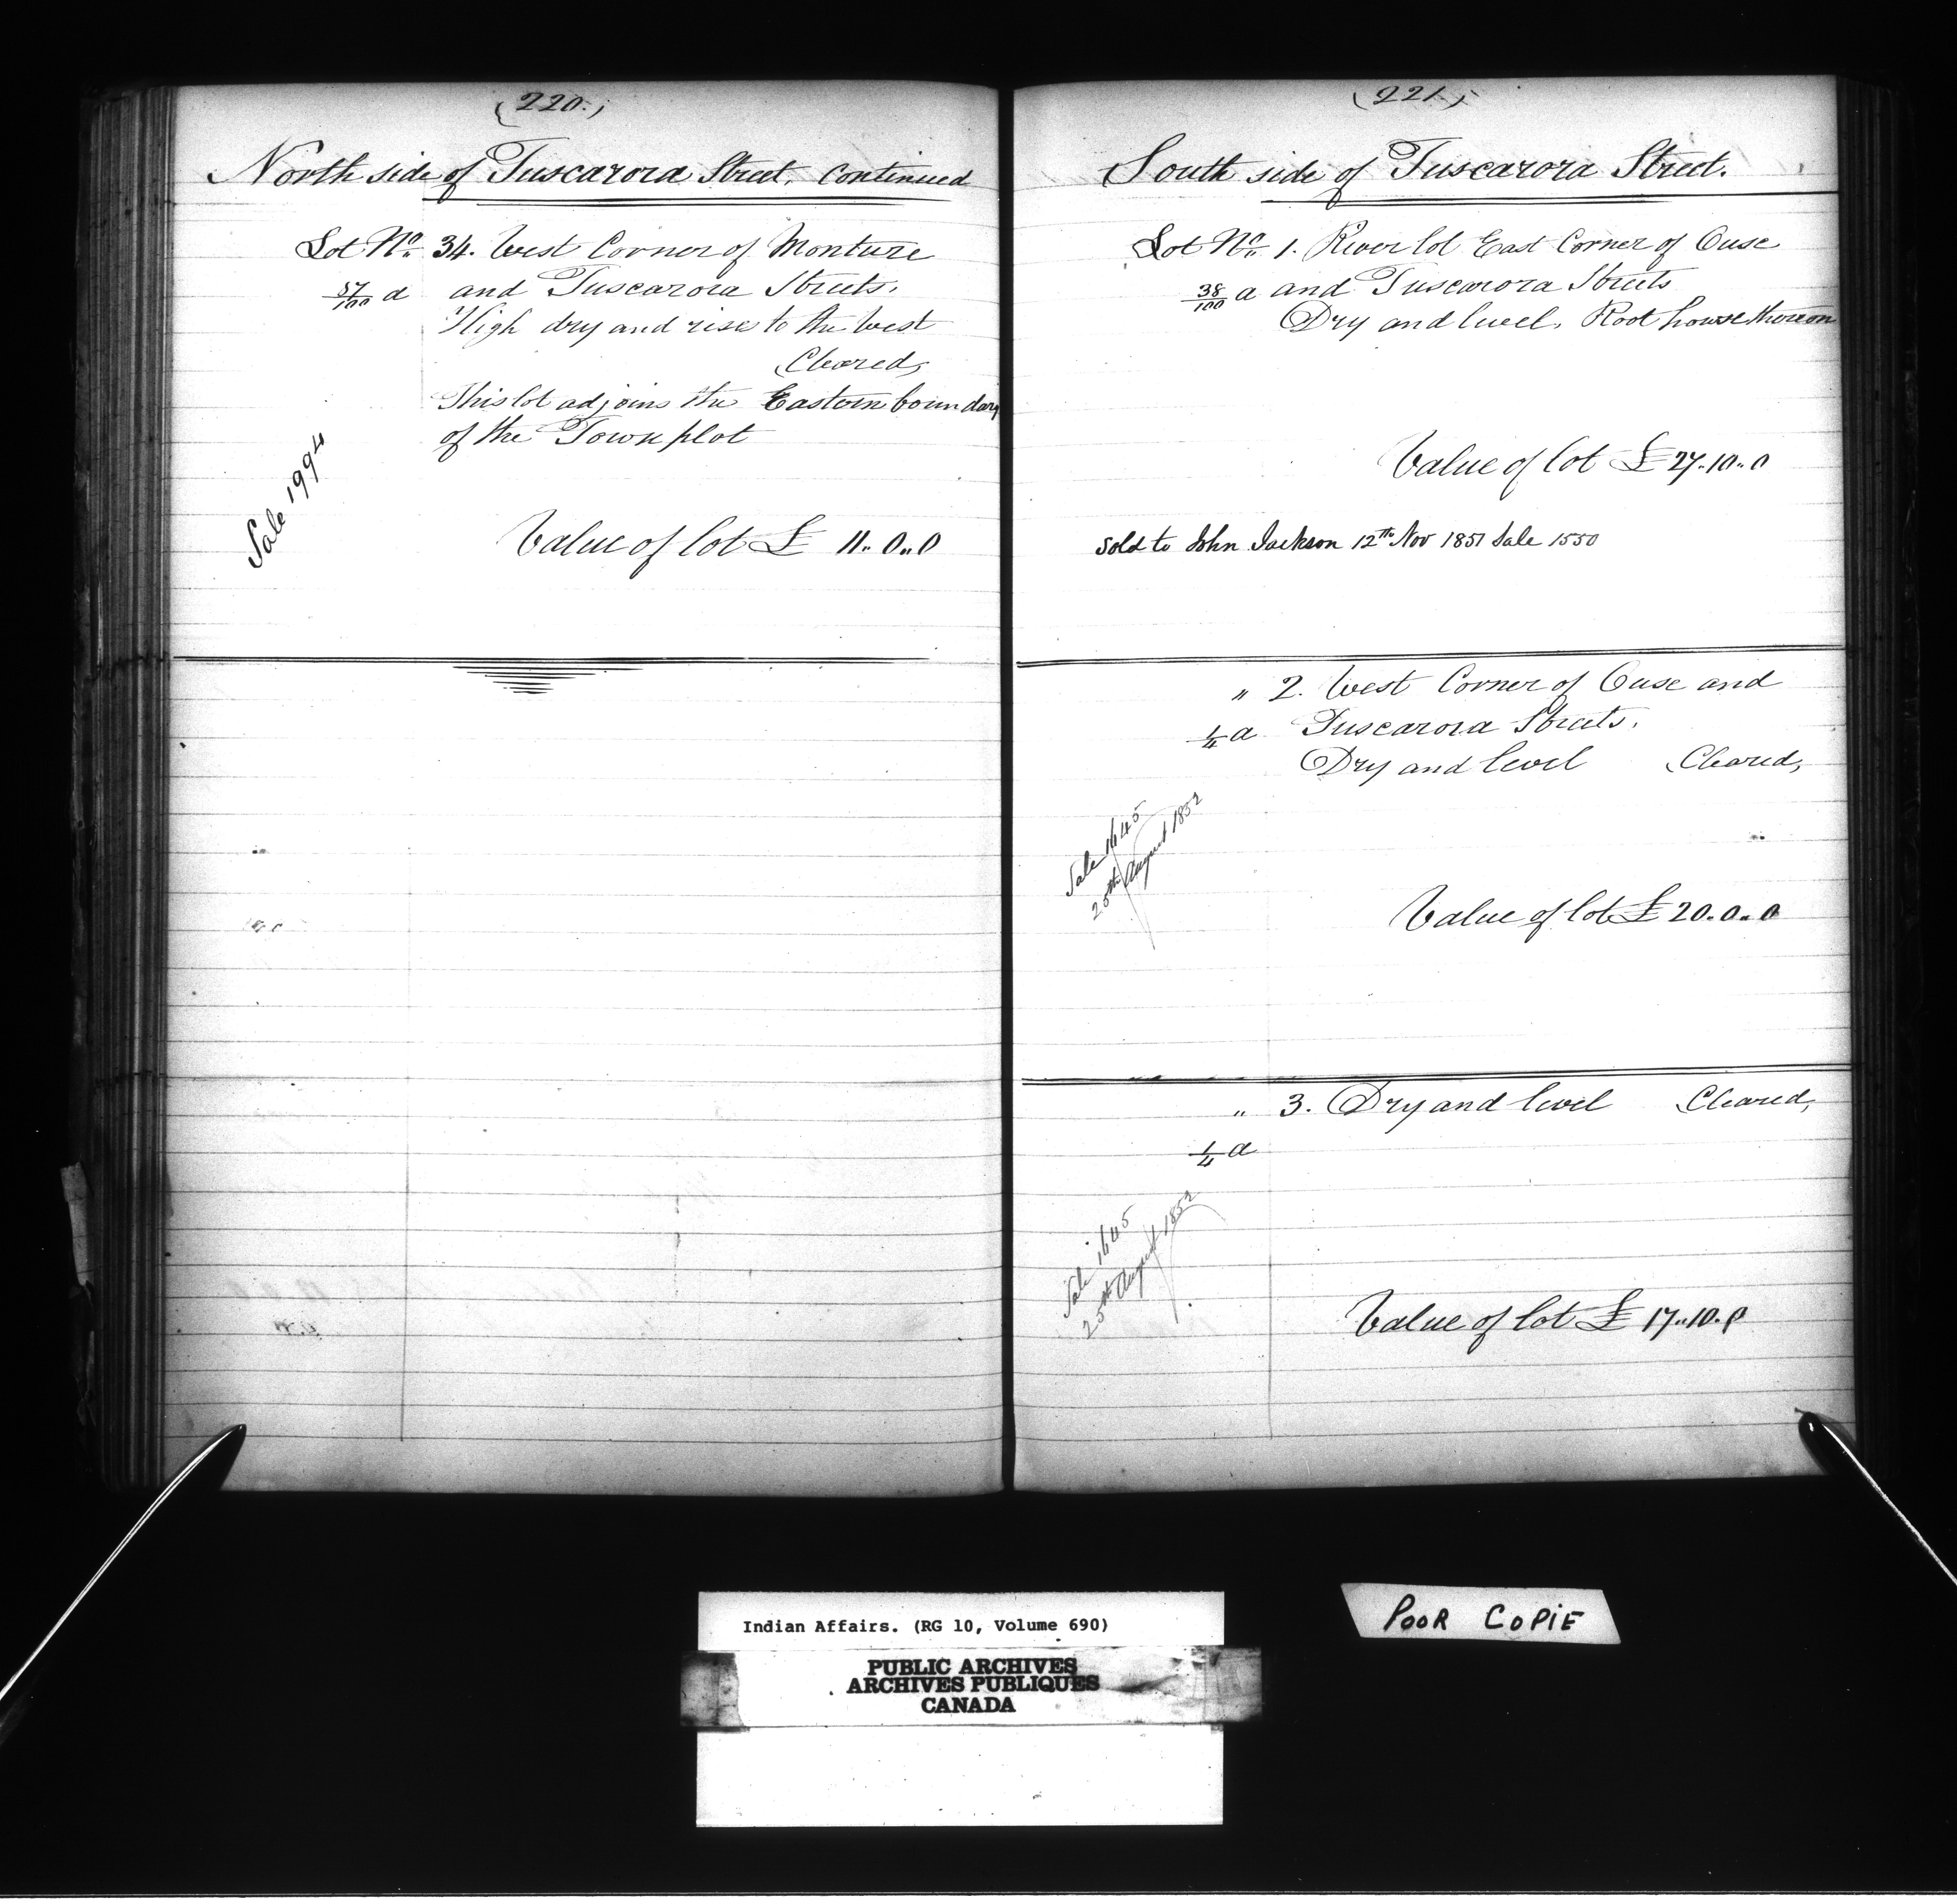 (220.)
North side of Tuscarora Street. Continued
Lot No. 34. West Corner of Monture
57/100 a and Tuscarora Streets.
High dry and rise to the West
Cleared,
This lot adjoins the Eastern boundary
of the Town plot
Sale 1994
Value of lot £ 11..0..0
(221.)
South side of Tuscarora Street.
Lot No. 1. River lot East Corner of Ouse
38/100 a and Tuscarora Streets
Dry and level. Root house thereon
Value of lot £ 27.10..0
Sold to John Jackson 12th Nov 1851 Sale 1550
" 2. West Corner of Ouse and
1/4 a Tuscarora Streets.
Dry and level Cleared,
Sale 1645
25th August 1852
Value of lot £ 20.0..0
" 3. Dry and level Cleared,
1/4 a
Sale 1645
25th August 1852
Value of lot £ 17..10.0
Indian Affairs. (RG 10, Volume 690)
PUBLIC ARCHIVES
ARCHIVES PUBLIQUES
CANADA
POOR COPIE